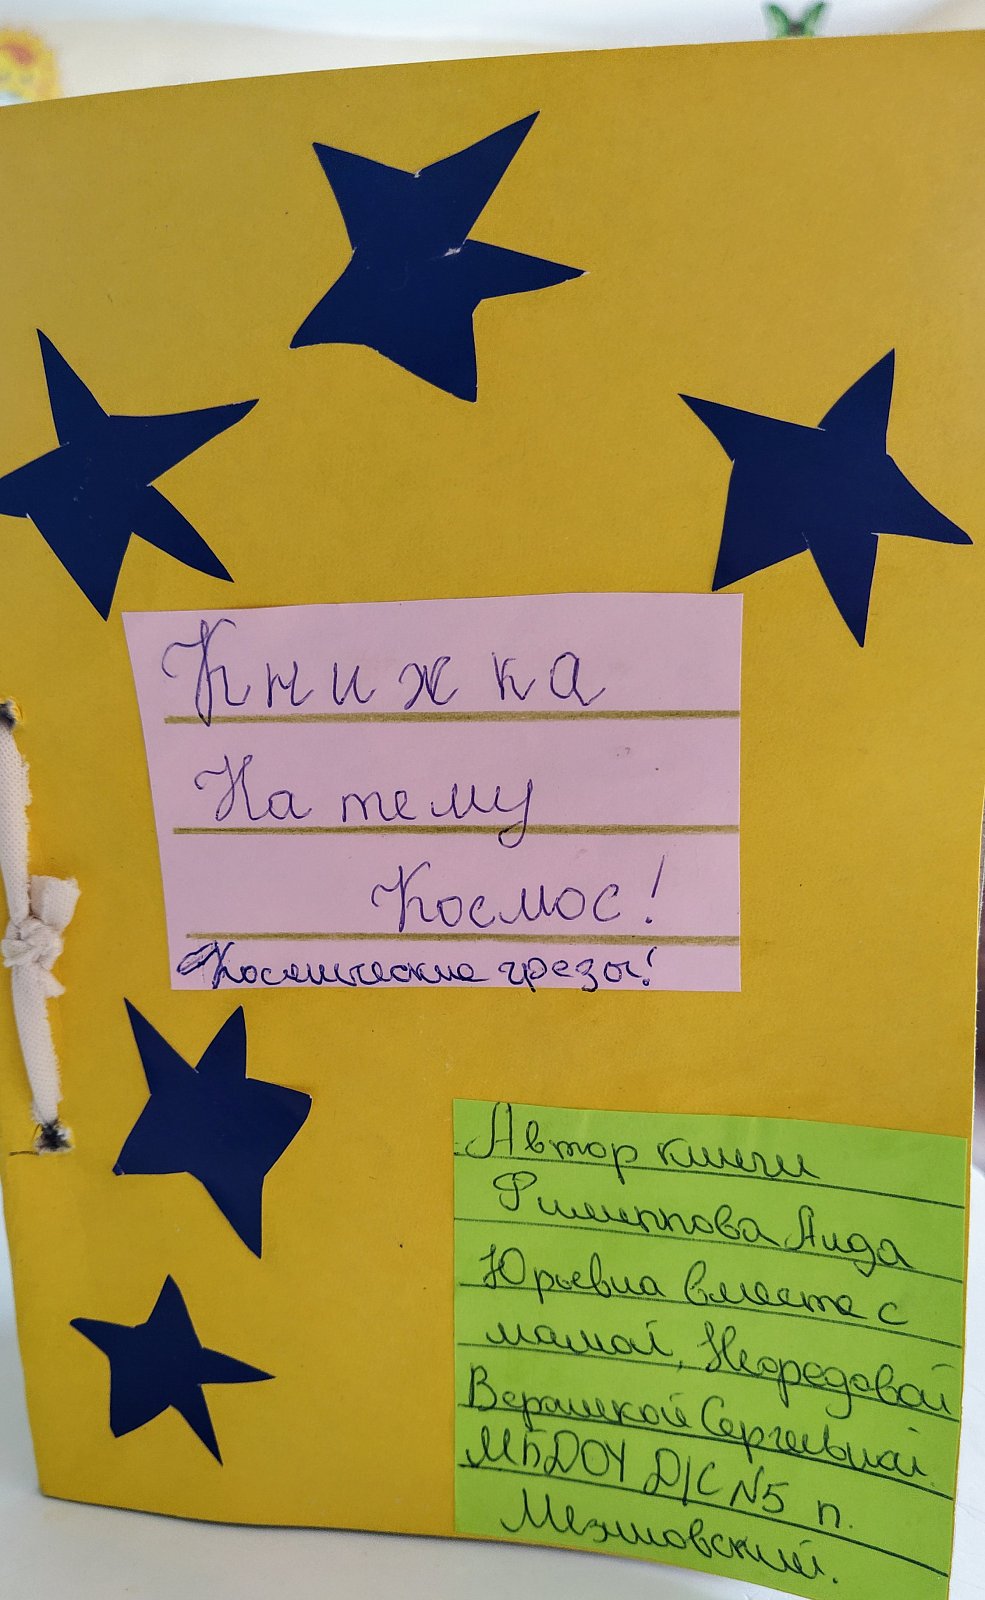 Книжка
На тему
Космос!
Космические грезы!
Автор книги
Филиппова Аида
Юрьевна вместе с
мамой,
Сергеевной.
МБДОУ Д/С N5 п.
Мезиновский.